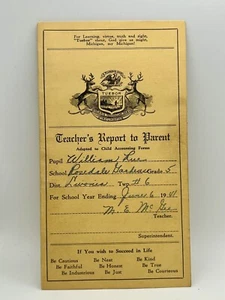 For Learning, virtue, truth and right,
"Tuebor" shout, God give us might,
Michigan, our Michigan!
TUEBOR
Teacher's Report to Parent
Adapted to Child Accounting Forms
Pupil William
School Rosedale Gardens No. 5
Dist. Livonia Twp # 6
For School Year Ending June 6 1941
M. E. McGee
Teacher.
Superintendent.
If you Wish to Succeed in Life
Be Cautious Be Neat Be Kind
Be Faithful Be Honest Be True
Be Industrious Be Just Be Courteous